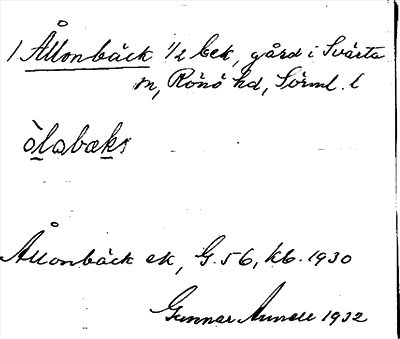 1 Ållonbäck 1/2 bek, gård i Svärta
sn, Rönö hd, Sörml. l
òlabæks
Ållonbäck ek, G. 56, kb. 1930
Gunnar 1932